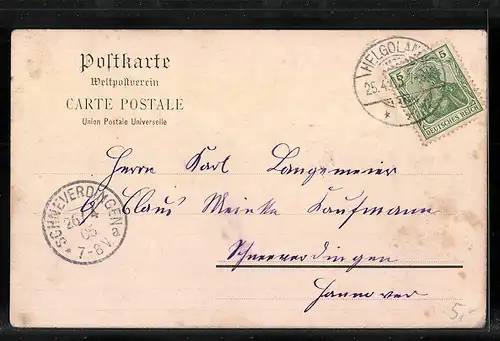 Postkarte
Weltpostverein
CARTE POSTALE
Union Postale Universelle
HELGOLAND
25.4.
5 5
DEUTSCHES REICH
Herrn Karl Langemeier
Claus Meinke Kaufmann
Schneverdingen
Hannover
SCHNEVERDINGEN
26 4
06
* 7-8 V. a
5,-